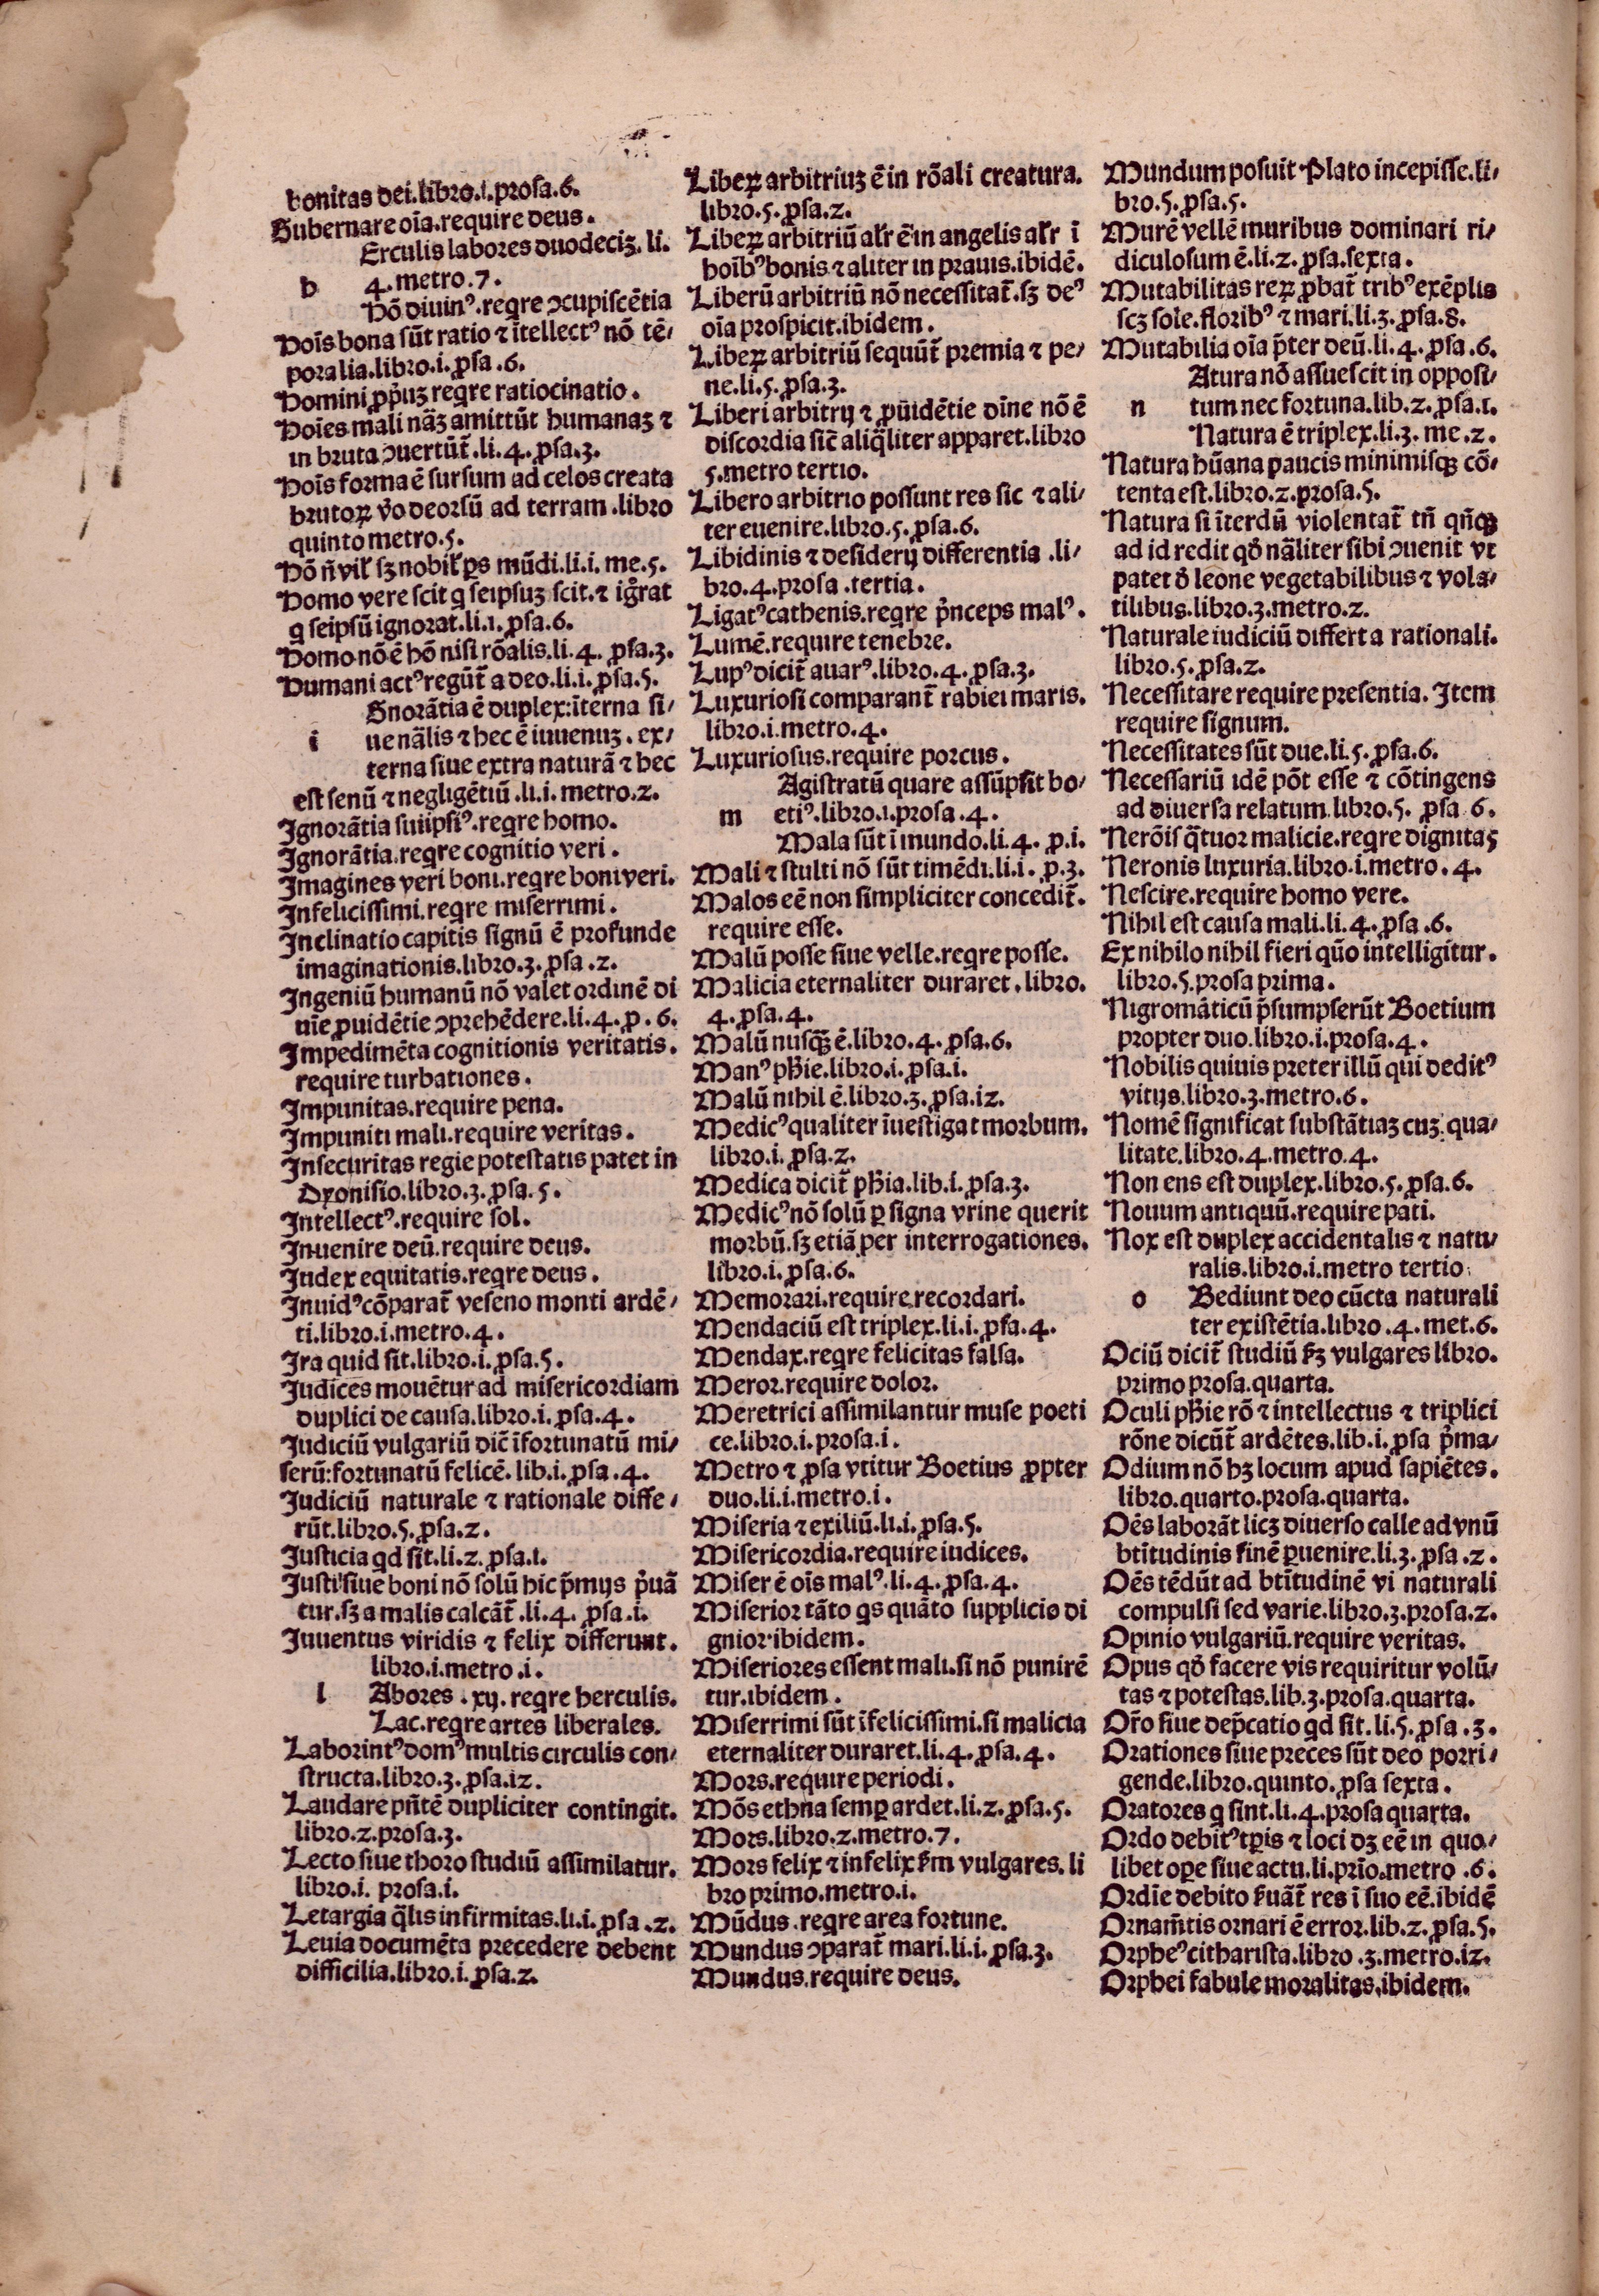 bonitas dei.libro.i.prosa.6.
Gubernare oīa.require deus.
Erculis labores duodeciꝫ.li.
h 4.metro.7.
Hō diuinꝰ.reqre ↄcupiscētia
Hoīs bona sūt ratio ⁊ ītellectꝰ nō tē/
poralia.libro.i.ꝓsa.6.
Homini ꝓpͥuꝫ reqre ratiocinatio.
Hoīes mali nāꝫ amittūt humanaꝫ ⁊
in bruta ↄuertūt̄.li.4.ꝓsa.3.
Hoīs forma ē sursum ad celos creata
brutoꝝ v̊o deorsū ad terram.libro
quinto metro.5.
Hō n̄ vilꝉ sꝫ nobilꝉ ꝑs mūdi.li.i.me.5.
Homo vere scit q seipsuꝫ scit.⁊ ig̃rat
q seipsū ignorat.li.1.ꝓsa.6.
Homo nō ē hō nisi rōalis.li.4.ꝓsa.3.
Humani actꝰ regūt̄ a deo.li.i.ꝓsa.5.
Gnorātia ē duplex:īterna si/
i ue nālis ⁊ hec ē iuuenuꝫ.ex/
terna siue extra naturā ⁊ hec
est senū ⁊ negligētiū.li.i.metro.2.
Ignorātia suiipsiꝰ.reqre homo.
Ignorātia.reqre cognitio veri.
Imagines veri boni.reqre boni veri.
Infelicissimi.reqre miserrimi.
Inclinatio capitis signū ē profunde
imaginationis.libro.3.ꝓsa.2.
Ingeniū humanū nō valet ordinē di
uīe ꝓuidētie ↄprehēdere.li.4.ꝓ.6.
Impedimēta cognitionis veritatis.
require turbationes.
Impunitas.require pena.
Impuniti mali.require veritas.
Insecuritas regie potestatis patet in
Dyonisio.libro.3.ꝓsa.5.
Intellectꝰ.require sol.
Inuenire deū.require deus.
Iudex equitatis.reqre deus.
Inuidꝰ cōparat̄ veseno monti ardē/
ti.libro.i.metro.4.
Ira quid sit.libro.i.ꝓsa.5.
Iudices mouētur ad misericordiam
duplici de causa.libro.i.ꝓsa.4.
Iudiciū vulgariū dic̄ īfortunatū mi/
serū:fortunatū felicē.lib.i.ꝓsa.4.
Iudiciū naturale ⁊ rationale diffe/
rūt.libro.5.ꝓsa.2.
Iusticia qd sit.li.2.ꝓsa.1.
Iusti siue boni nō solū hic p̄mijs pͥuā
tur.sꝫ a malis calcāt̄.li.4.ꝓsa.i.
Iuuentus viridis ⁊ felix differunt.
libro.i.metro.i.
l Abores.xij.reqre herculis.
Lac.reqre artes liberales.
Laborintꝰ domꝰ multis circulis con/
structa.libro.3.ꝓsa.12.
Laudare pn̄tē dupliciter contingit.
libro.2.prosa.3.
Lecto siue thoro studiū assimilatur.
libro.i.prosa.i.
Letargia q̄lis infirmitas.li.i.ꝓsa.2.
Leuia documēta precedere debent
difficilia.libro.i.ꝓsa.2.
Libeꝝ arbitriuꝫ ē in rōali creatura.
libro.5.ꝓsa.2.
Libeꝝ arbitriū alr̄ ē in angelis alr̄ ī
hoībꝰ bonis ⁊ aliter in prauis.ibidē.
Liberū arbitriū nō necessitat̄.sꝫ deꝰ
oīa prospicit.ibidem.
Libeꝝ arbitriū sequūt̄ premia ⁊ pe/
ne.li.5.ꝓsa.3.
Liberi arbitrij ⁊ ꝓuidētie dīne nō ē
discordia sic̄ aliq̄liter apparet.libro
5.metro tertio.
Libero arbitrio possunt res sic ⁊ ali/
ter euenire.libro.5.ꝓsa.6.
Libidinis ⁊ desiderij differentia.li/
bro.4.prosa.tertia.
Ligatꝰ cathenis.reqre pͥnceps malꝰ.
Lumē.require tenebre.
Lupꝰ dicit̄ auarꝰ.libro.4.ꝓsa.3.
Luxuriosi comparant̄ rabiei maris.
libro.i.metro.4.
Luxuriosus.require porcus.
Agistratū quare assūpsit bo/
m etiꝰ.libro.1.prosa.4.
Mala sūt ī mundo.li.4.ꝓ.i.
Mali ⁊ stulti nō sūt timēdi.li.i.ꝓ.3.
Malos eē non simpliciter concedit̄.
require esse.
Malū posse siue velle.reqre posse.
Malicia eternaliter duraret.libro.
4.ꝓsa.4.
Malū nusqꝫ ē.libro.4.ꝓsa.6.
Manꝰ phīe.libro.i.ꝓsa.i.
Malū nihil ē.libro.3.ꝓsa.12.
Medicꝰ qualiter īuestigat morbum.
libro.i.ꝓsa.2.
Medica dicit̄ phīa.lib.i.ꝓsa.3.
Medicꝰ nō solū ꝑ signa vrine querit
morbū.sꝫ etiā per interrogationes.
libro.i.ꝓsa.6.
Memorari.require recordari.
Mendaciū est triplex.li.i.ꝓsa.4.
Mendax.reqre felicitas falsa.
Meror.require dolor.
Meretrici assimilantur muse poeti
ce.libro.i.prosa.i.
Metro ⁊ ꝓsa vtitur Boetius ꝓpter
duo.li.i.metro.i.
Miseria ⁊ exiliū.li.i.ꝓsa.5.
Misericordia.require iudices.
Miser ē oīs malꝰ.li.4.ꝓsa.4.
Miserior tāto qs quāto supplicio di
gnior ibidem.
Miseriores essent mali.si nō punirē
tur.ibidem.
Miserrimi sūt īfelicissimi.si malicia
eternaliter duraret.li.4.ꝓsa.4.
Mors.require periodi.
Mōs ethna semꝑ ardet.li.2.ꝓsa.5.
Mors.libro.2.metro.7.
Mors felix ⁊ infelix ẜm vulgares.li
bro primo.metro.i.
Mūdus.reqre area fortune.
Mundus ↄparat̄ mari.li.i.ꝓsa.3.
Mundus.require deus.
Mundum posuit Plato incepisse.li/
bro.5.ꝓsa.5.
Murē vellē muribus dominari ri/
diculosum ē.li.2.ꝓsa.sexta.
Mutabilitas reꝝ ꝓbat̄ tribꝰ exēplis
scꝫ sole.floribꝰ ⁊ mari.li.3.ꝓsa.8.
Mutabilia oīa p̄ter deū.li.4.ꝓsa.6.
Atura nō assuescit in opposi/
n tum nec fortuna.lib.2.ꝓsa.1.
Natura ē triplex.li.3.me.2.
Natura hūana paucis minimisqꝫ cō/
tenta est.libro.2.prosa.5.
Natura si īterdū violentat̄ tn̄ qn̄qꝫ
ad id redit qd̊ nāliter sibi ↄuenit vt
patet d̊ leone vegetabilibus ⁊ vola/
tilibus.libro.3.metro.2.
Naturale iudiciū differt a rationali.
libro.5.ꝓsa.2.
Necessitare require presentia.Item
require signum.
Necessitates sūt due.li.5.ꝓsa.6.
Necessariū idē pōt esse ⁊ cōtingens
ad diuersa relatum.libro.5.ꝓsa 6.
Nerōis q̄tuor malicie.reqre dignitas
Neronis luxuria.libro.i.metro.4.
Nescire.require homo vere.
Nihil est causa mali.li.4.ꝓsa.6.
Ex nihilo nihil fieri quō intelligitur.
libro.5.prosa prima.
Nigromāticū p̄sumpserūt Boetium
propter duo.libro.i.prosa.4.
Nobilis quiuis preter illū qui deditꝰ
vitijs.libro.3.metro.6.
Nomē significat substātiaꝫ cuꝫ qua/
litate.libro.4.metro.4.
Non ens est duplex.libro.5.ꝓsa.6.
Nouum antiquū.require pati.
Nox est duplex accidentalis ⁊ natu/
ralis.libro.i.metro tertio.
o Bediunt deo cūcta naturali
ter existētia.libro.4.met.6.
Ociū dicit̄ studiū ẜꝫ vulgares libro.
primo prosa.quarta.
Oculi phīe rō ⁊ intellectus ⁊ triplici
rōne dicūt̄ ardētes.lib.i.ꝓsa pͥma/
Odium nō hꝫ locum apud sapiētes.
libro.quarto.prosa.quarta.
Oēs laborāt licꝫ diuerso calle ad vnū
bt̄itudinis finē ꝑuenire.li.3.ꝓsa.2.
Oēs tēdūt ad bt̄itudinē vi naturali
compulsi sed varie.libro.3.prosa.2.
Opinio vulgariū.require veritas.
Opus qd̊ facere vis requiritur volū/
tas ⁊ potestas.lib.3.prosa.quarta.
Or̄o siue dep̄catio qd sit.li.5.ꝓsa.3.
Orationes siue preces sūt deo porri/
gende.libro.quinto.ꝓsa sexta.
Oratores q sint.li.4.prosa quarta.
Ordo debitꝰ tꝑis ⁊ loci dꝫ eē in quo/
libet oꝑe siue actu.li.prīo.metro.6.
Ordīe debito ẜuāt̄ res ī suo eē.ibidē
Ornam̄tis ornari ē error.lib.2.ꝓsa.5.
Orpheꝰ citharista.libro.3.metro.12.
Orphei fabule moralitas.ibidem.